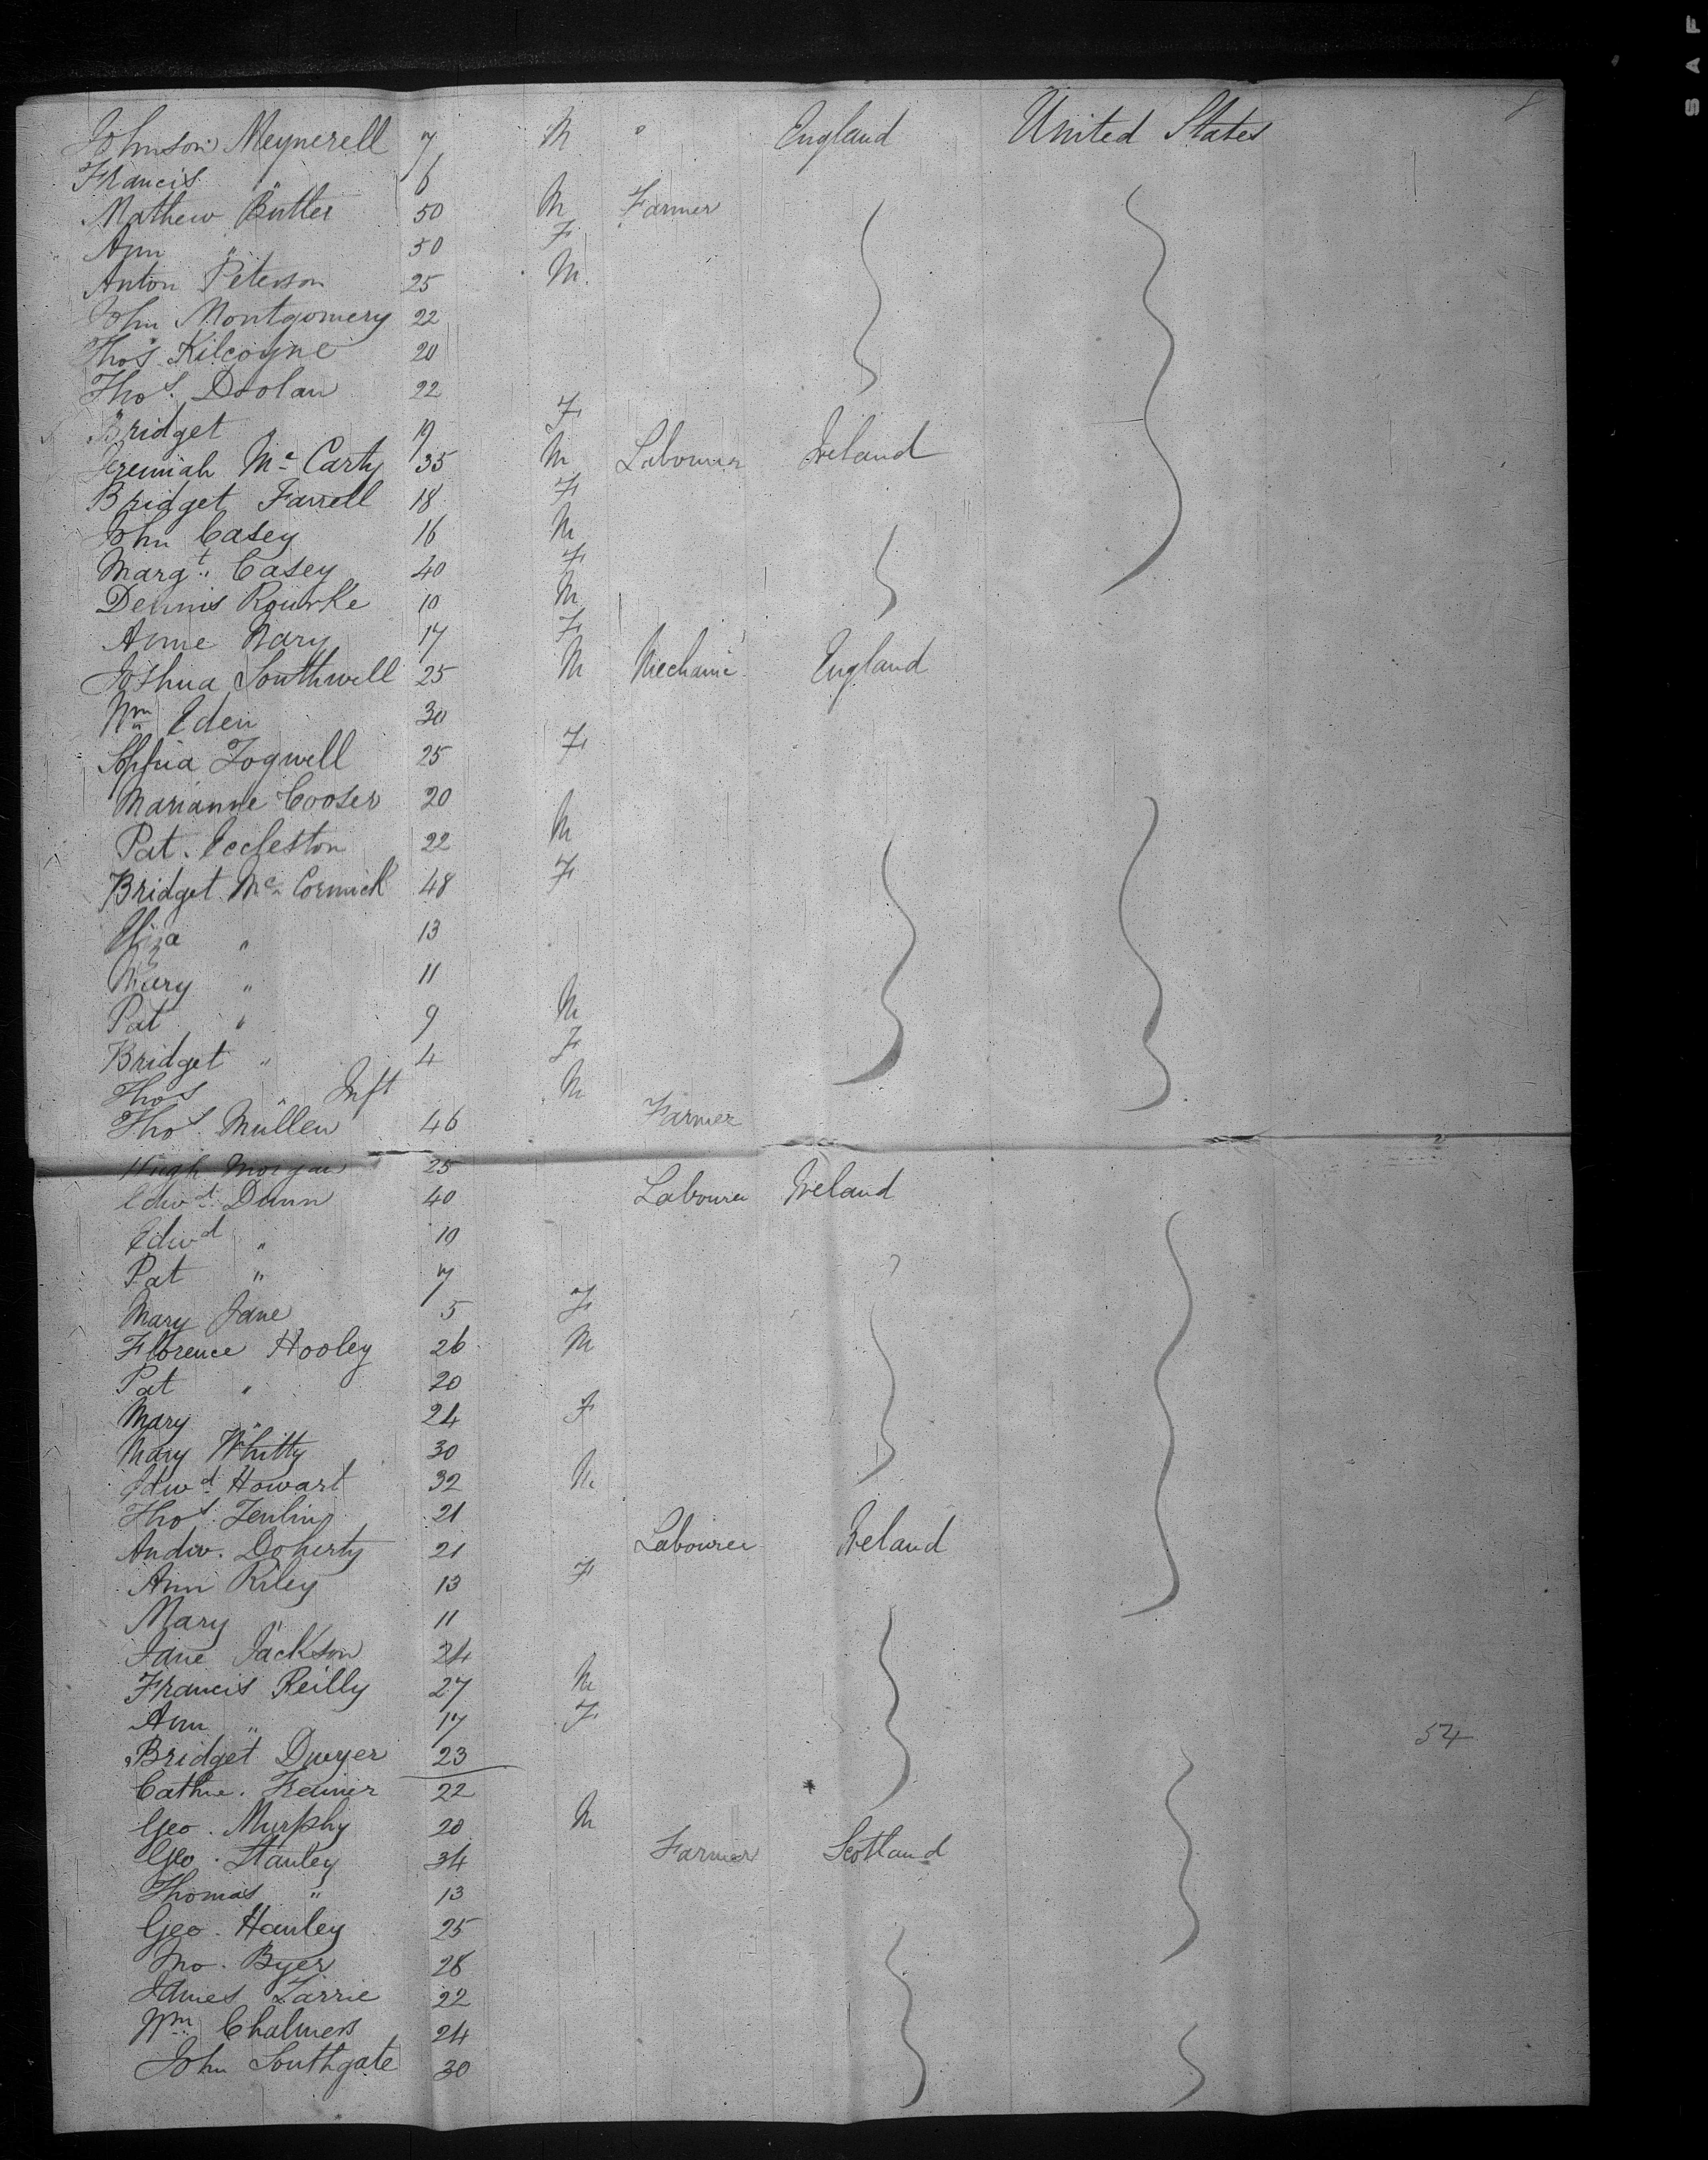 8
Johnson Meynerell 7 M " England United States
Francis " 6
Mathew Butler 50 M Farmer
Ann " 50 F
Anton Peterson 25 M
John Montgomery 22
Thos Kilcoyne 20
Thos. Doolan 22
Bridget " 19 F
Jeremiah Mc Carty 35 M Labourer Ireland
Bridget Farrell 18 F
John Casey 16 M
Margt. Casey 40 F
Dennis Rourke 10 M
Anne Nary 17 F
Joshua Southwell 25 M Mechanic England
Wm Eden 30
Sophia Fogwell 25 F
Marianne Cooser 20
Pat. Eccleston 22 M
Bridget Mc Cormick 48 F
Eliza " 13
Mary " 11
Pat " 9 M
Bridget " 4 F
Thos " Inft M
Thos. Mullen 46 Farmer
Hugh Morgan 25
Edwd. Dunn 40 Labourer Ireland
Edwd " 10
Pat " 7
Mary Jane 5 F
Florence Hooley 26 M
Pat " 20
Mary " 24 F
Mary Whitty 30
Edwd. Howart 32 M
Thos. 21
Andw. Doherty 21 Labourer Ireland
Ann Riley 13 F
Mary " 11
Jane Jackson 24
Francis Reilly 27 M
Ann " 17 F
54
Bridget Dwyer 23
Cathne. 22
Geo. Murphy 20 M
Geo. Stanley 34 Farmer Scotland
Thomas " 13
Geo. Hanley 25
Jno. Byer 28
James Larrie 22
Wm Chalmers 24
John Southgate 30
S A F